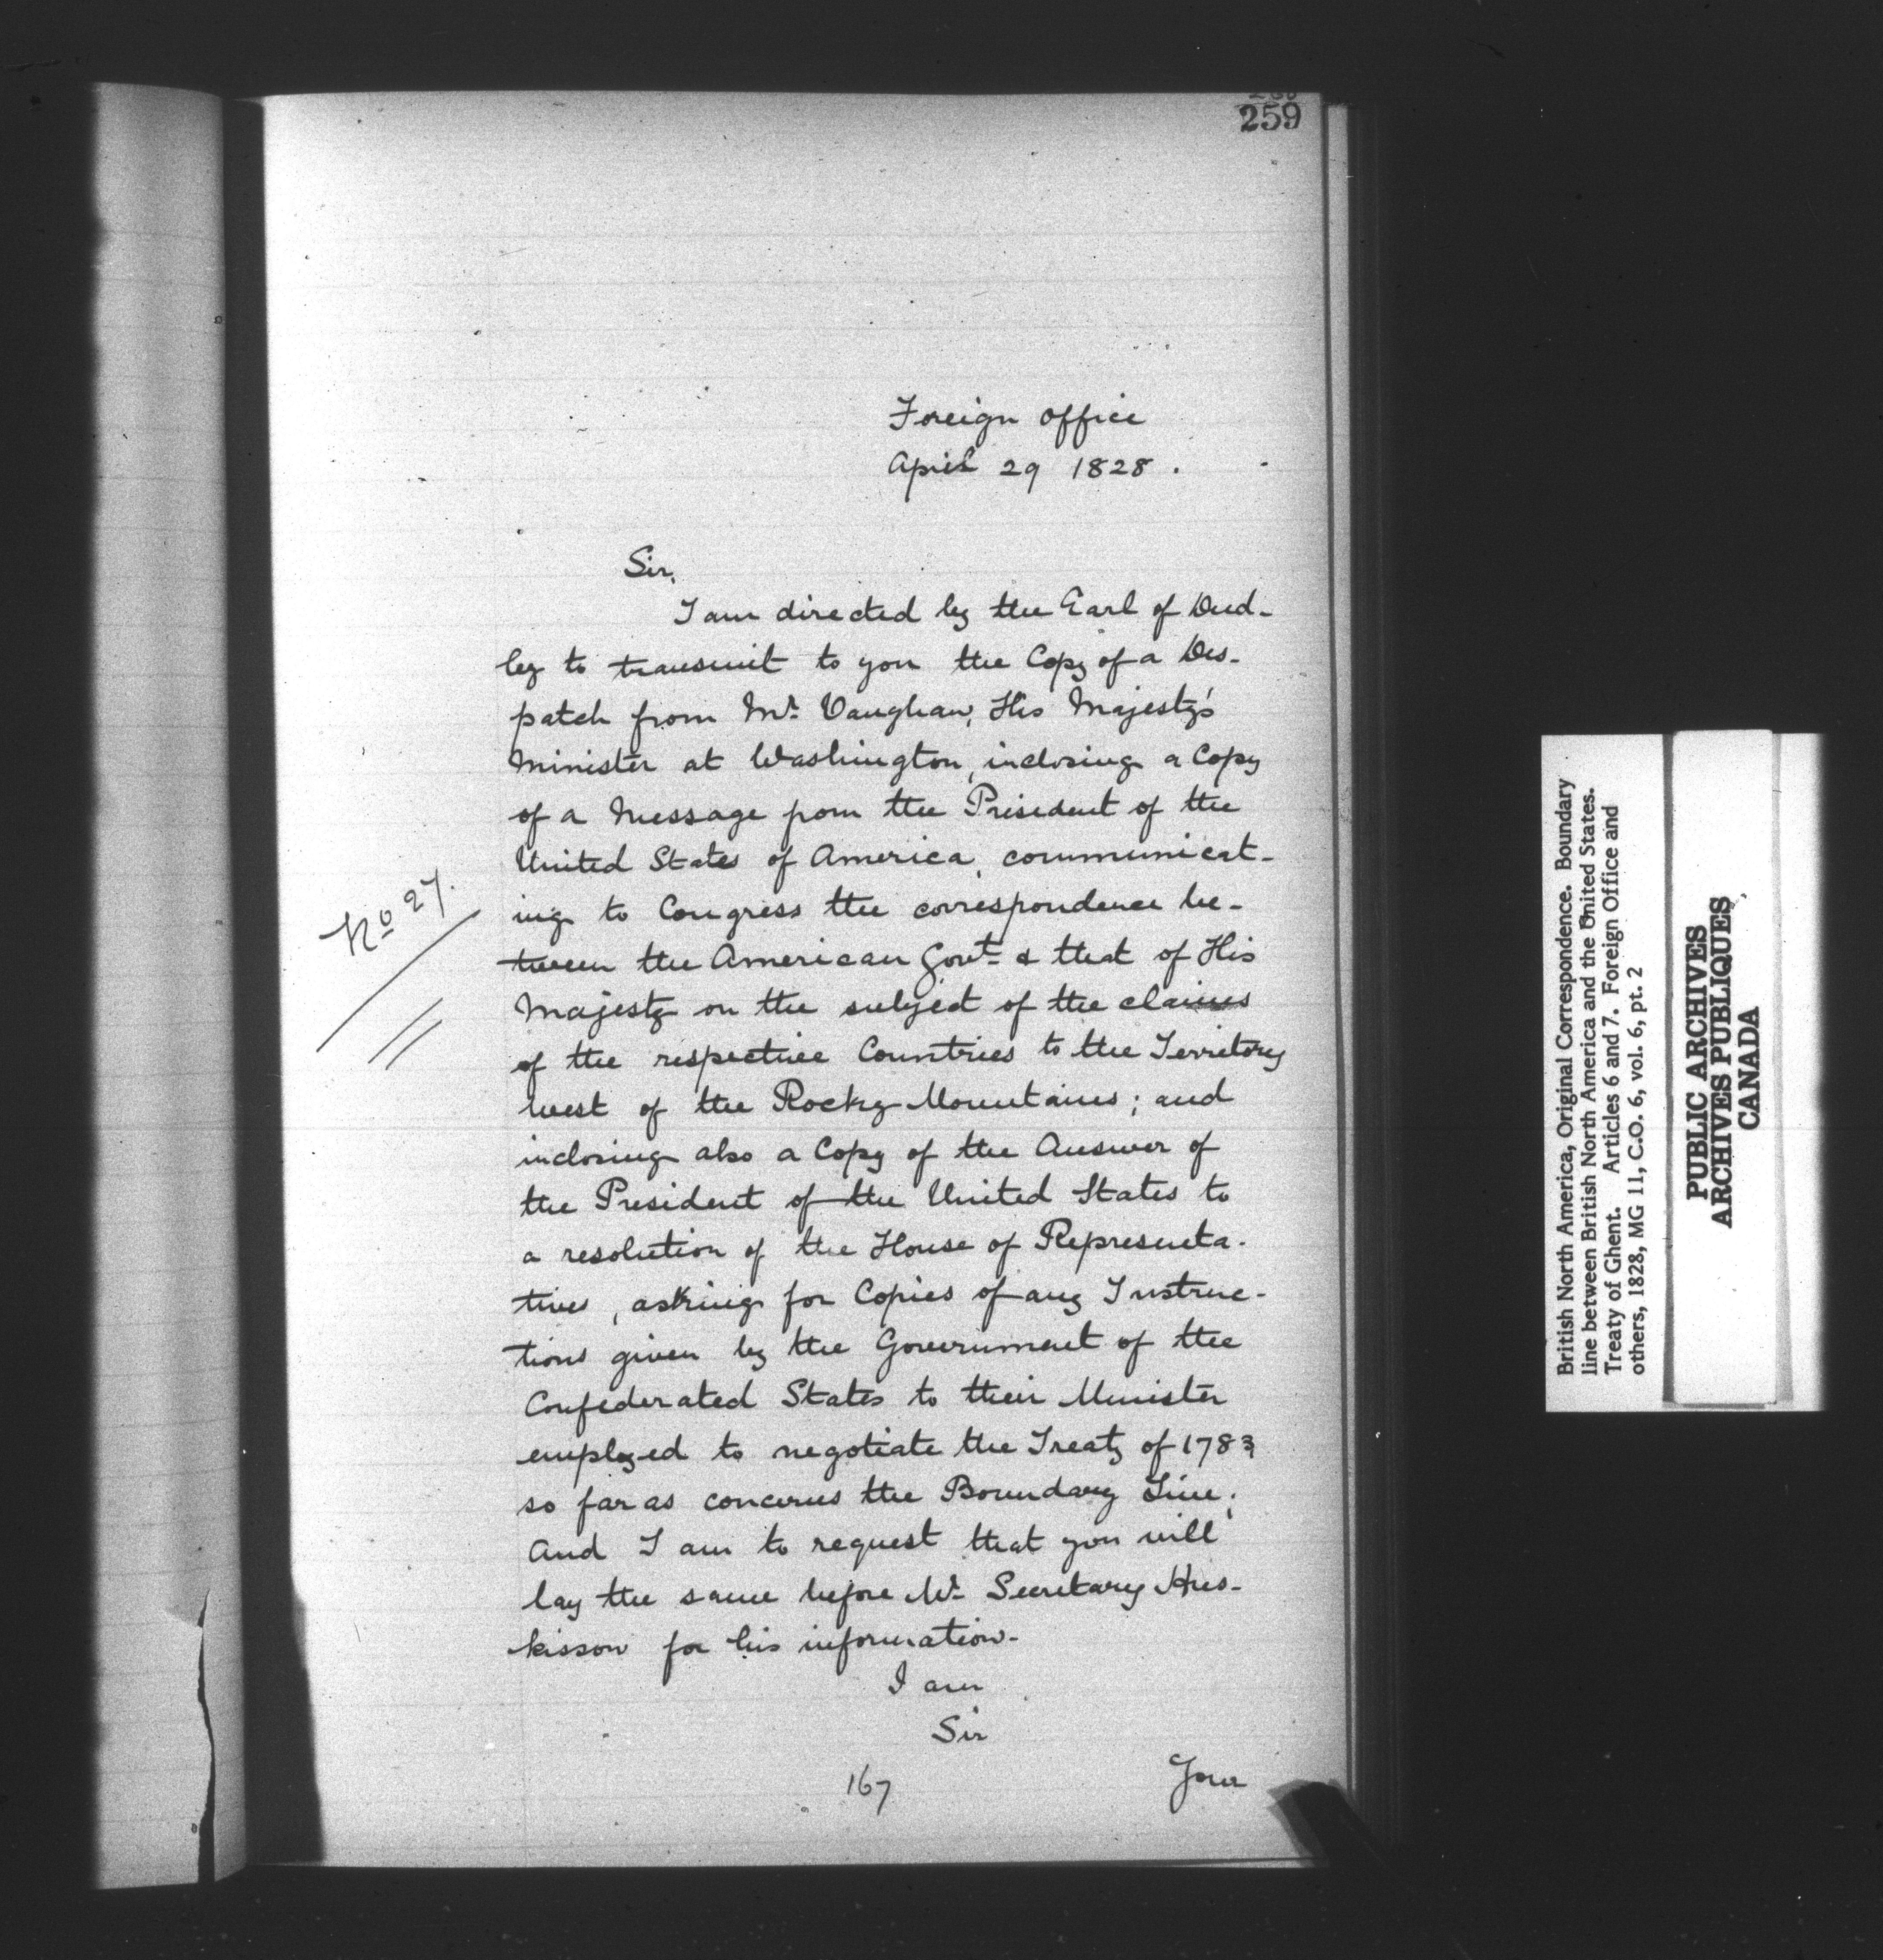 259
Foreign Office
April 29 1828.
Sir,
I am directed by the Earl of Dud-
ley to transmit to you the Copy of a Des-
patch from Mr. Vaughan, His Majesty's
Minister at Washington, inclosing a Copy
of a Message from the President of the
United States of America, communicat-
ing to Congress the correspondence be-
tween the American Govt. & that of His
Majesty on the subject of the claims
of the respective Countries to the Territory
West of the Rocky Mountains; and
inclosing also a Copy of the Answer of
the President of the United States to
a resolution of the House of Representa-
tives, asking for Copies of any Instruc-
tions given by the Government of the
Confederated States to their Minister
employed to negotiate the Treaty of 1783
so far as concerns the Boundary Line;
And I am to request that you will
lay the same before Mr. Secretary Hus-
kisson for his information.
I am
Sir
Your
167
No 27.
British North America, Original Correspondence. Boundary
line between British North America and the United States.
Treaty of Ghent. Articles 6 and 7. Foreign Office and
others, 1828, MG 11, C.O. 6, vol. 6, pt. 2
PUBLIC ARCHIVES
ARCHIVES PUBLIQUES
CANADA